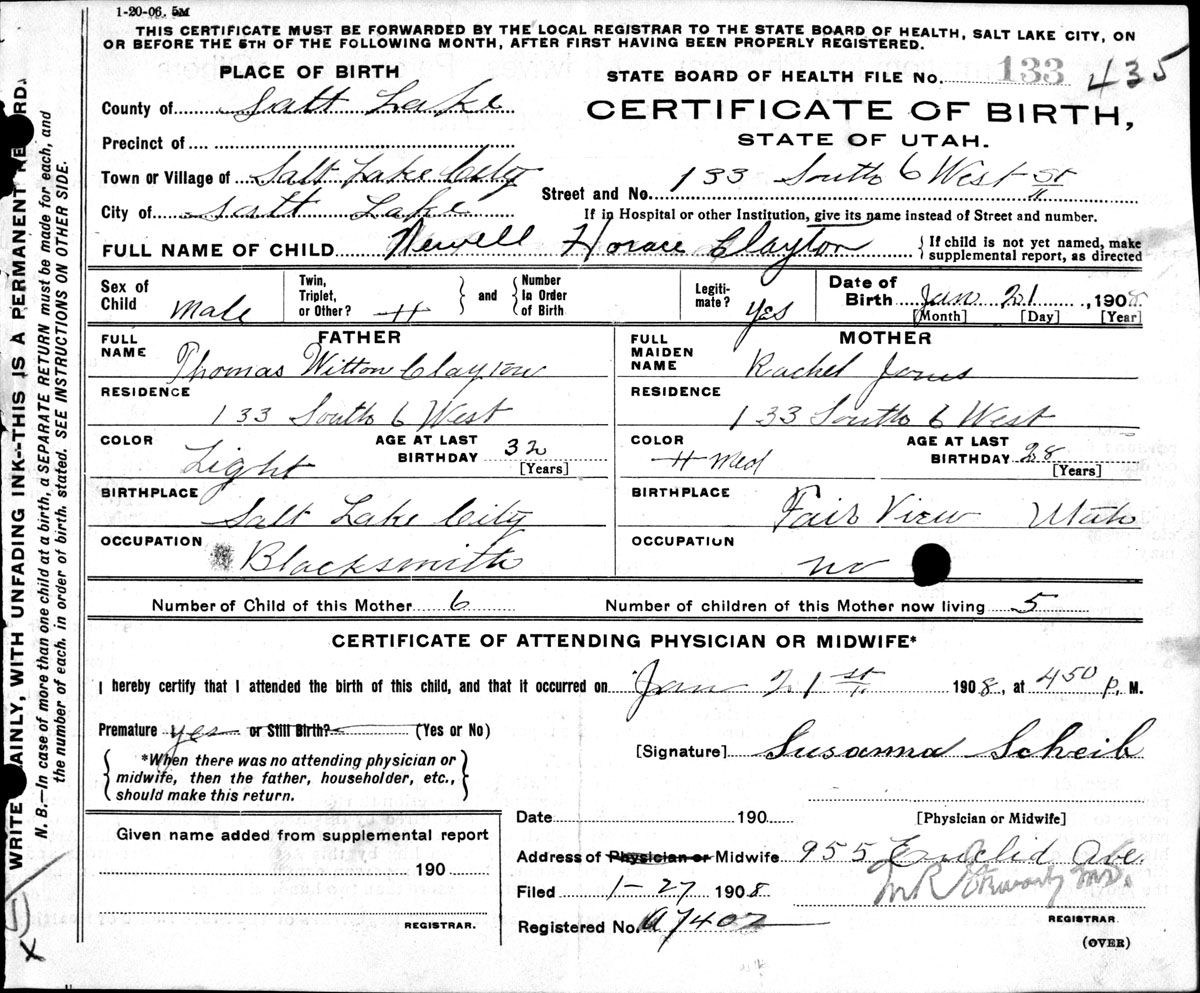 1-20-06. 5M
THIS CERTIFICATE MUST BE FORWARDED BY THE LOCAL REGISTRAR TO THE STATE BOARD OF HEALTH, SALT LAKE CITY, ON
OR BEFORE THE 5TH OF THE FOLLOWING MONTH, AFTER FIRST HAVING BEEN PROPERLY REGISTERED.
PLACE OF BIRTH
STATE BOARD OF HEALTH FILE No. 133 435
County of Salt Lake
CERTIFICATE OF BIRTH,
STATE OF UTAH.
Precinct of
Town or Village of Salt Lake City
Street and No. 133 South 6 West St
City of Salt Lake
If in Hospital or other Institution, give its name instead of Street and number.
FULL NAME OF CHILD Newell Horace Clayton
{ If child is not yet named, make
supplemental report, as directed
Sex of Child Male
Twin, Triplet, or Other?
and
Number In Order of Birth
Legiti- mate? Yes
Date of Birth Jan 21, 1908
[Month] [Day] [Year]
FATHER
FULL NAME Thomas Witton Clayton
RESIDENCE
133 South 6 West
COLOR Light
AGE AT LAST BIRTHDAY 32 [Years]
BIRTHPLACE
Salt Lake City
OCCUPATION
Blacksmith
MOTHER
FULL MAIDEN NAME Rachel Jones
RESIDENCE
133 South 6 West
COLOR Med
AGE AT LAST BIRTHDAY 28 [Years]
BIRTHPLACE Fair View Utah
OCCUPATION
no
Number of Child of this Mother 6
Number of children of this Mother now living 5
CERTIFICATE OF ATTENDING PHYSICIAN OR MIDWIFE*
I hereby certify that I attended the birth of this child, and that it occurred on Jan 21st 1908, at 450 P. M.
Premature yes or Still Birth? (Yes or No)
[Signature] Susanna Scheib
*When there was no attending physician or
midwife, then the father, householder, etc.,
should make this return.
Date 190
[Physician or Midwife]
Given name added from supplemental report
190
REGISTRAR.
Address of Physician or Midwife 955 Euclid Ave.
Filed 1-27 1908
M.D.
REGISTRAR
Registered No. 7402
(OVER)
WRITE AINLY, WITH UNFADING INK--THIS IS A PERMANENT RE ORD.
N. B.—In case of more than one child at a birth, a SEPARATE RETURN must be made for each, and
the number of each, in order of birth, stated. SEE INSTRUCTIONS ON OTHER SIDE.